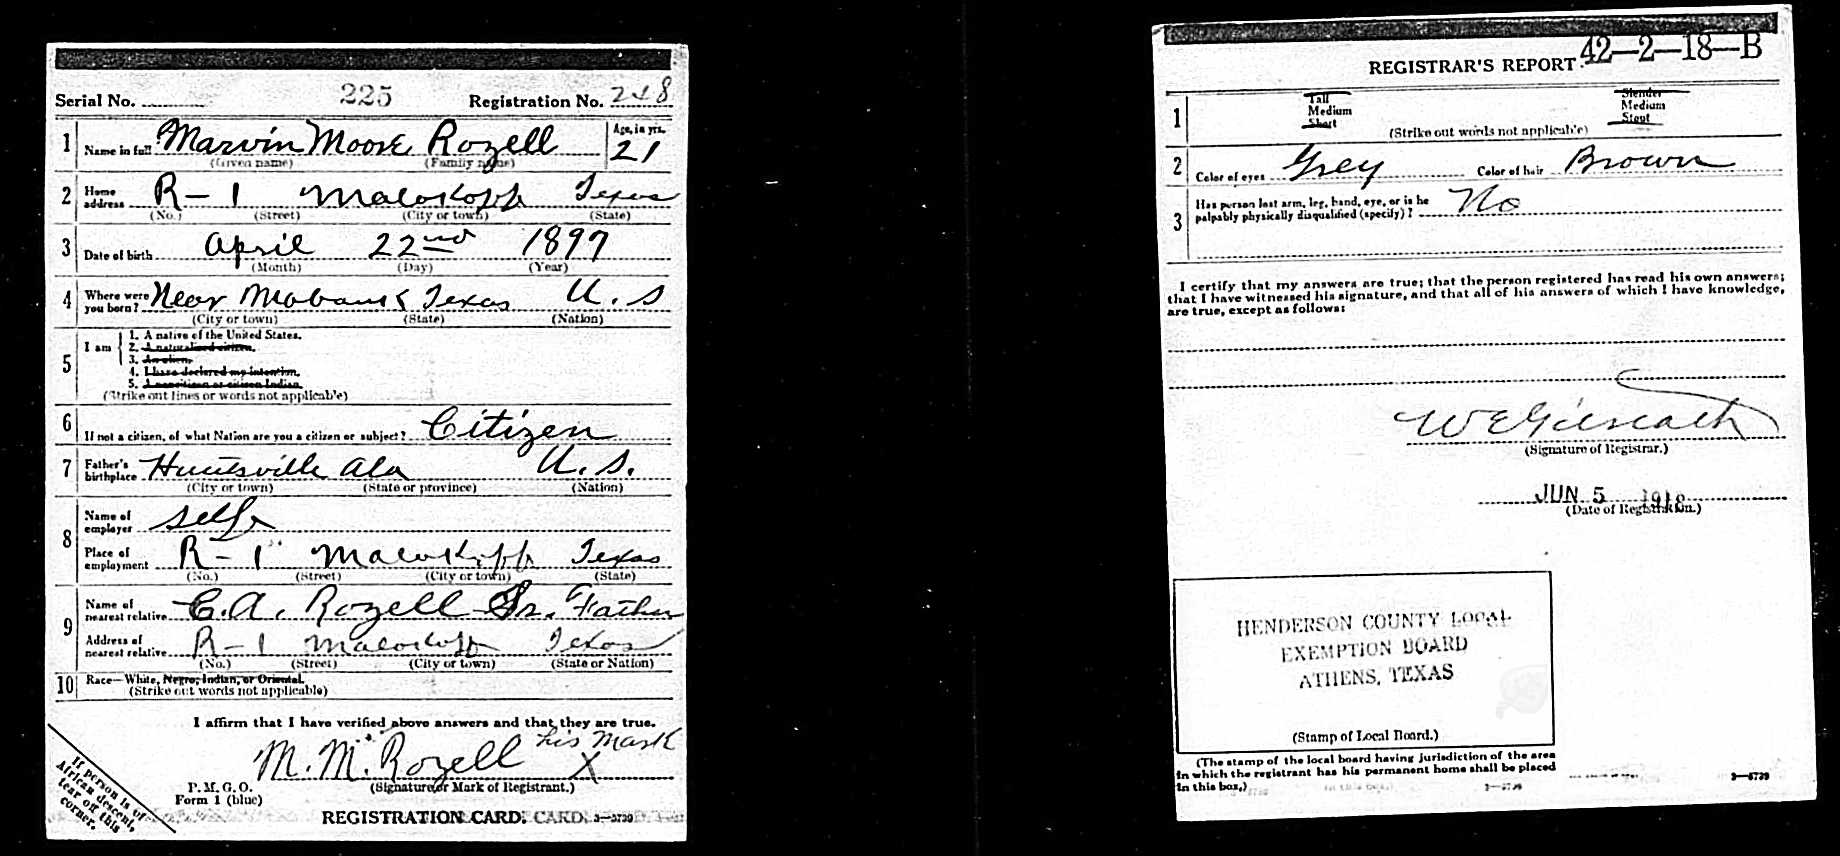 Serial No. 225 Registration No. 248
1 Name in full Marvin Moore Rozell Age, in yrs. 21
(Given name) (Family name)
2 Home address R-1 Malakoff Texas
(No.) (Street) (City or town) (State)
3 Date of birth April 22nd 1897
(Month) (Day) (Year)
4 Where were you born? Near Mabank Texas U. S
(City or town) (State) (Nation)
5 I am
1. A native of the United States.
2. A naturalized citizen.
3. An alien.
4. I have declared my intention.
5. A noncitizen or citizen Indian.
(Strike out lines or words not applicable)
6 If not a citizen, of what Nation are you a citizen or subject? Citizen
7 Father's birthplace Huntsville Ala U. S.
(City or town) (State or province) (Nation)
8 Name of employer Self
Place of employment R-1 Malakoff Texas
(No.) (Street) (City or town) (State)
9 Name of nearest relative C. A. Rozell Sr. Father
Address of nearest relative R-1 Malakoff Texas
(No.) (Street) (City or town) (State or Nation)
10 Race—White, Negro, Indian, or Oriental.
(Strike out words not applicable)
I affirm that I have verified above answers and that they are true.
M. M. Rozell his mark X
P. M. G. O.
Form 1 (blue)
(Signature or Mark of Registrant.)
REGISTRATION CARD. CARD. 3—5739
If person is of
African descent,
tear off this
corner.
42—2—18—B
REGISTRAR'S REPORT
1 Tall Slender
Medium Medium
Short Stout
(Strike out words not applicable)
2 Color of eyes Grey Color of hair Brown
3 Has person lost arm, leg, hand, eye, or is he
palpably physically disqualified (specify)? No
I certify that my answers are true; that the person registered has read his own answers;
that I have witnessed his signature, and that all of his answers of which I have knowledge,
are true, except as follows:
W E Gilreath
(Signature of Registrar.)
JUN 5 1918
(Date of Registration.)
HENDERSON COUNTY LOCAL
EXEMPTION BOARD
ATHENS, TEXAS
(Stamp of Local Board.)
(The stamp of the local board having jurisdiction of the area
in which the registrant has his permanent home shall be placed
in this box.)
3—5739